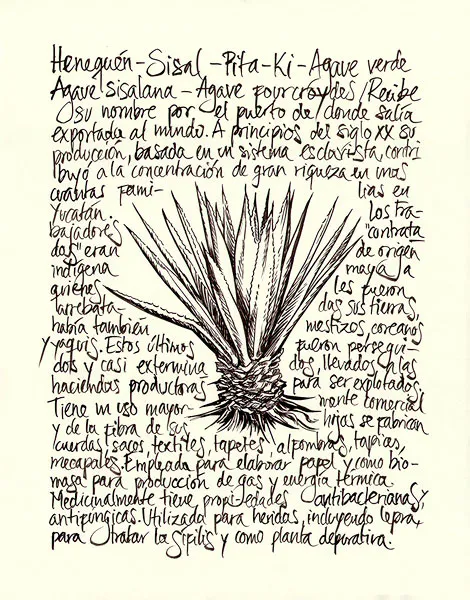 Henequén - Sisal - Pita - Ki - Agave verde
Agave Sisalana - Agave fourcroydes / Recibe
su nombre por el puerto de donde salía
exportada al mundo. A principios del siglo XX su
producción, basada en un sistema esclavista, contri
buyó a la concentración de gran riqueza en unas
cuantas fami- lias en
Yucatán. los tra-
bajadores "contrata
dos" eran de origen
indígena maya a
quienes les fueron
arrebata- das sus tierras,
había también mestizos, coreanos
y yaquis. Estos últimos fueron persegui-
dos y casi extermina dos, llevados a las
haciendas productoras para ser explotados.
Tiene un uso mayor- mente comercial
y de la fibra de sus hijas se fabrican
cuerdas, sacos, textiles, tapetes, alfombras, tapices,
mecapales. Empleada para elaborar papel y como bio-
masa para producción de gas y energía térmica.
Medicinalmente tiene propiedades antibacterianas y,
antifúngicas. Utilizada para heridas, incluyendo lepra,
para tratar la sífilis y como planta depurativa.